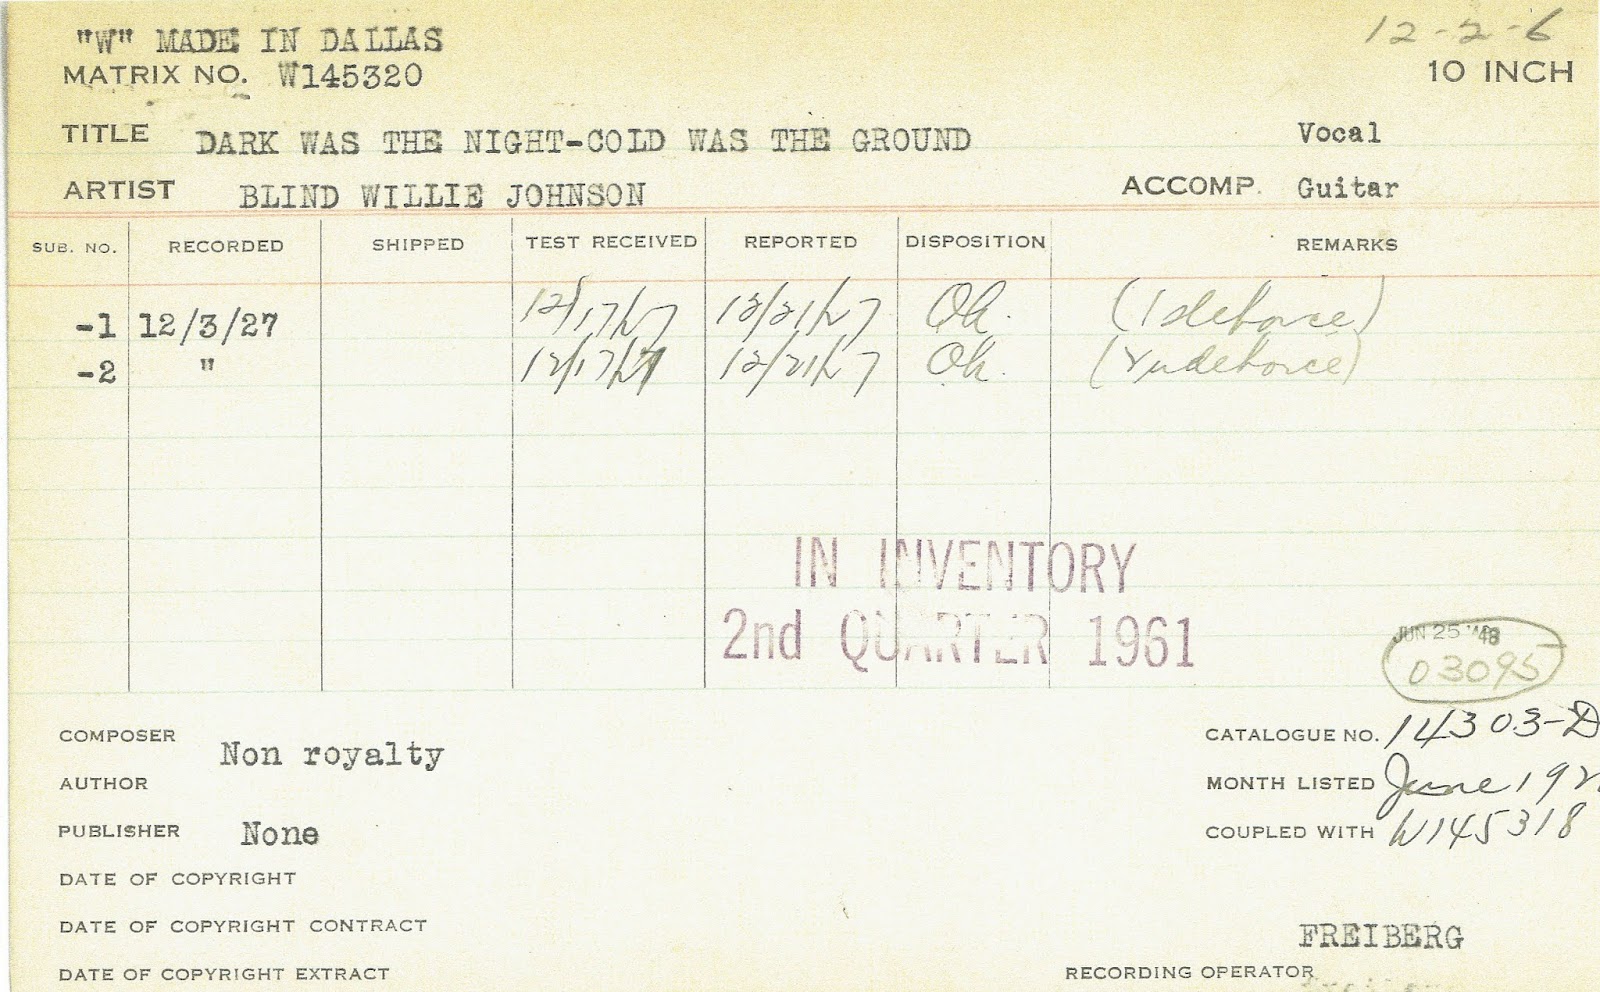 "W" MADE IN DALLAS
12-2-6
MATRIX NO. W145320
10 INCH
TITLE DARK WAS THE NIGHT-COLD WAS THE GROUND Vocal
ARTIST BLIND WILLIE JOHNSON ACCOMP. Guitar
SUB. NO. RECORDED SHIPPED TEST RECEIVED REPORTED DISPOSITION REMARKS
-1 12/3/27 12/17/27 12/21/27 Ok. (1st choice)
-2 " 12/17/27 12/21/27 Ok. (2nd choice)
IN INVENTORY
2nd QUARTER 1961
JUN 25 '48
03095
COMPOSER Non royalty
AUTHOR
PUBLISHER None
DATE OF COPYRIGHT
DATE OF COPYRIGHT CONTRACT
DATE OF COPYRIGHT EXTRACT
CATALOGUE NO. 14303-D
MONTH LISTED June 192
COUPLED WITH W145318
FREIBERG
RECORDING OPERATOR